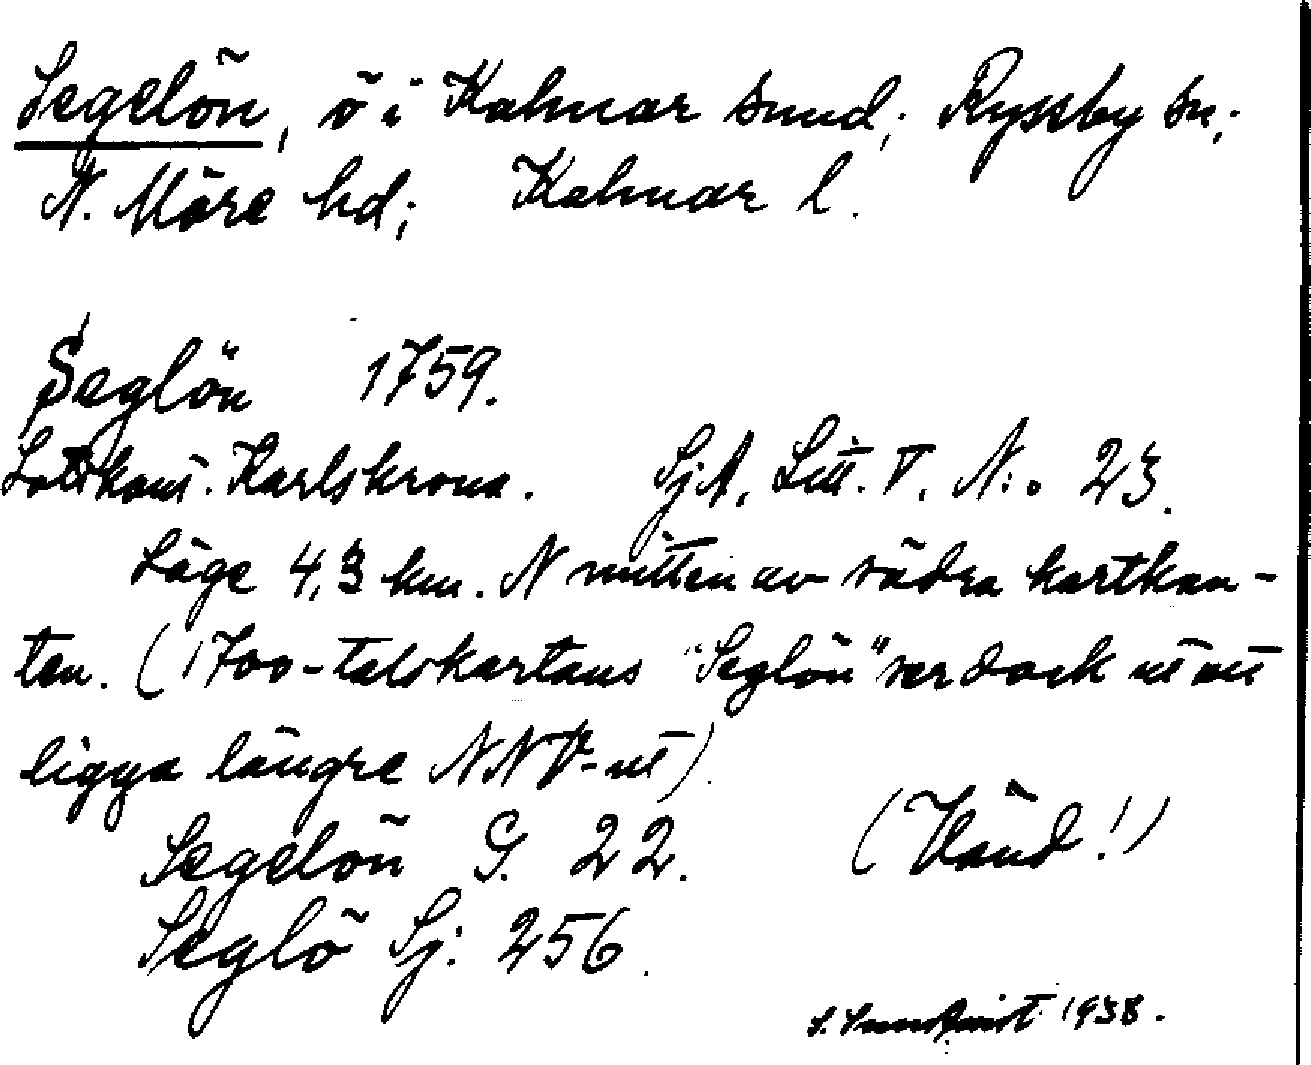 Segelön, ö i Kalmar sund; Ryssby sn;
N. Möre hd; Kalmar l.
Seglön 1759.
Lotskont. Karlskrona. SjA, Litt. V. N:o 23.
Läge 4,3 km. N mitten av södra kartkan-
ten. (1700-talskartans "Seglön" ser dock ut att
ligga längre NNV-ut).
Segelön G. 22. (Vänd!)
Seglö Sj: 256.
1938.